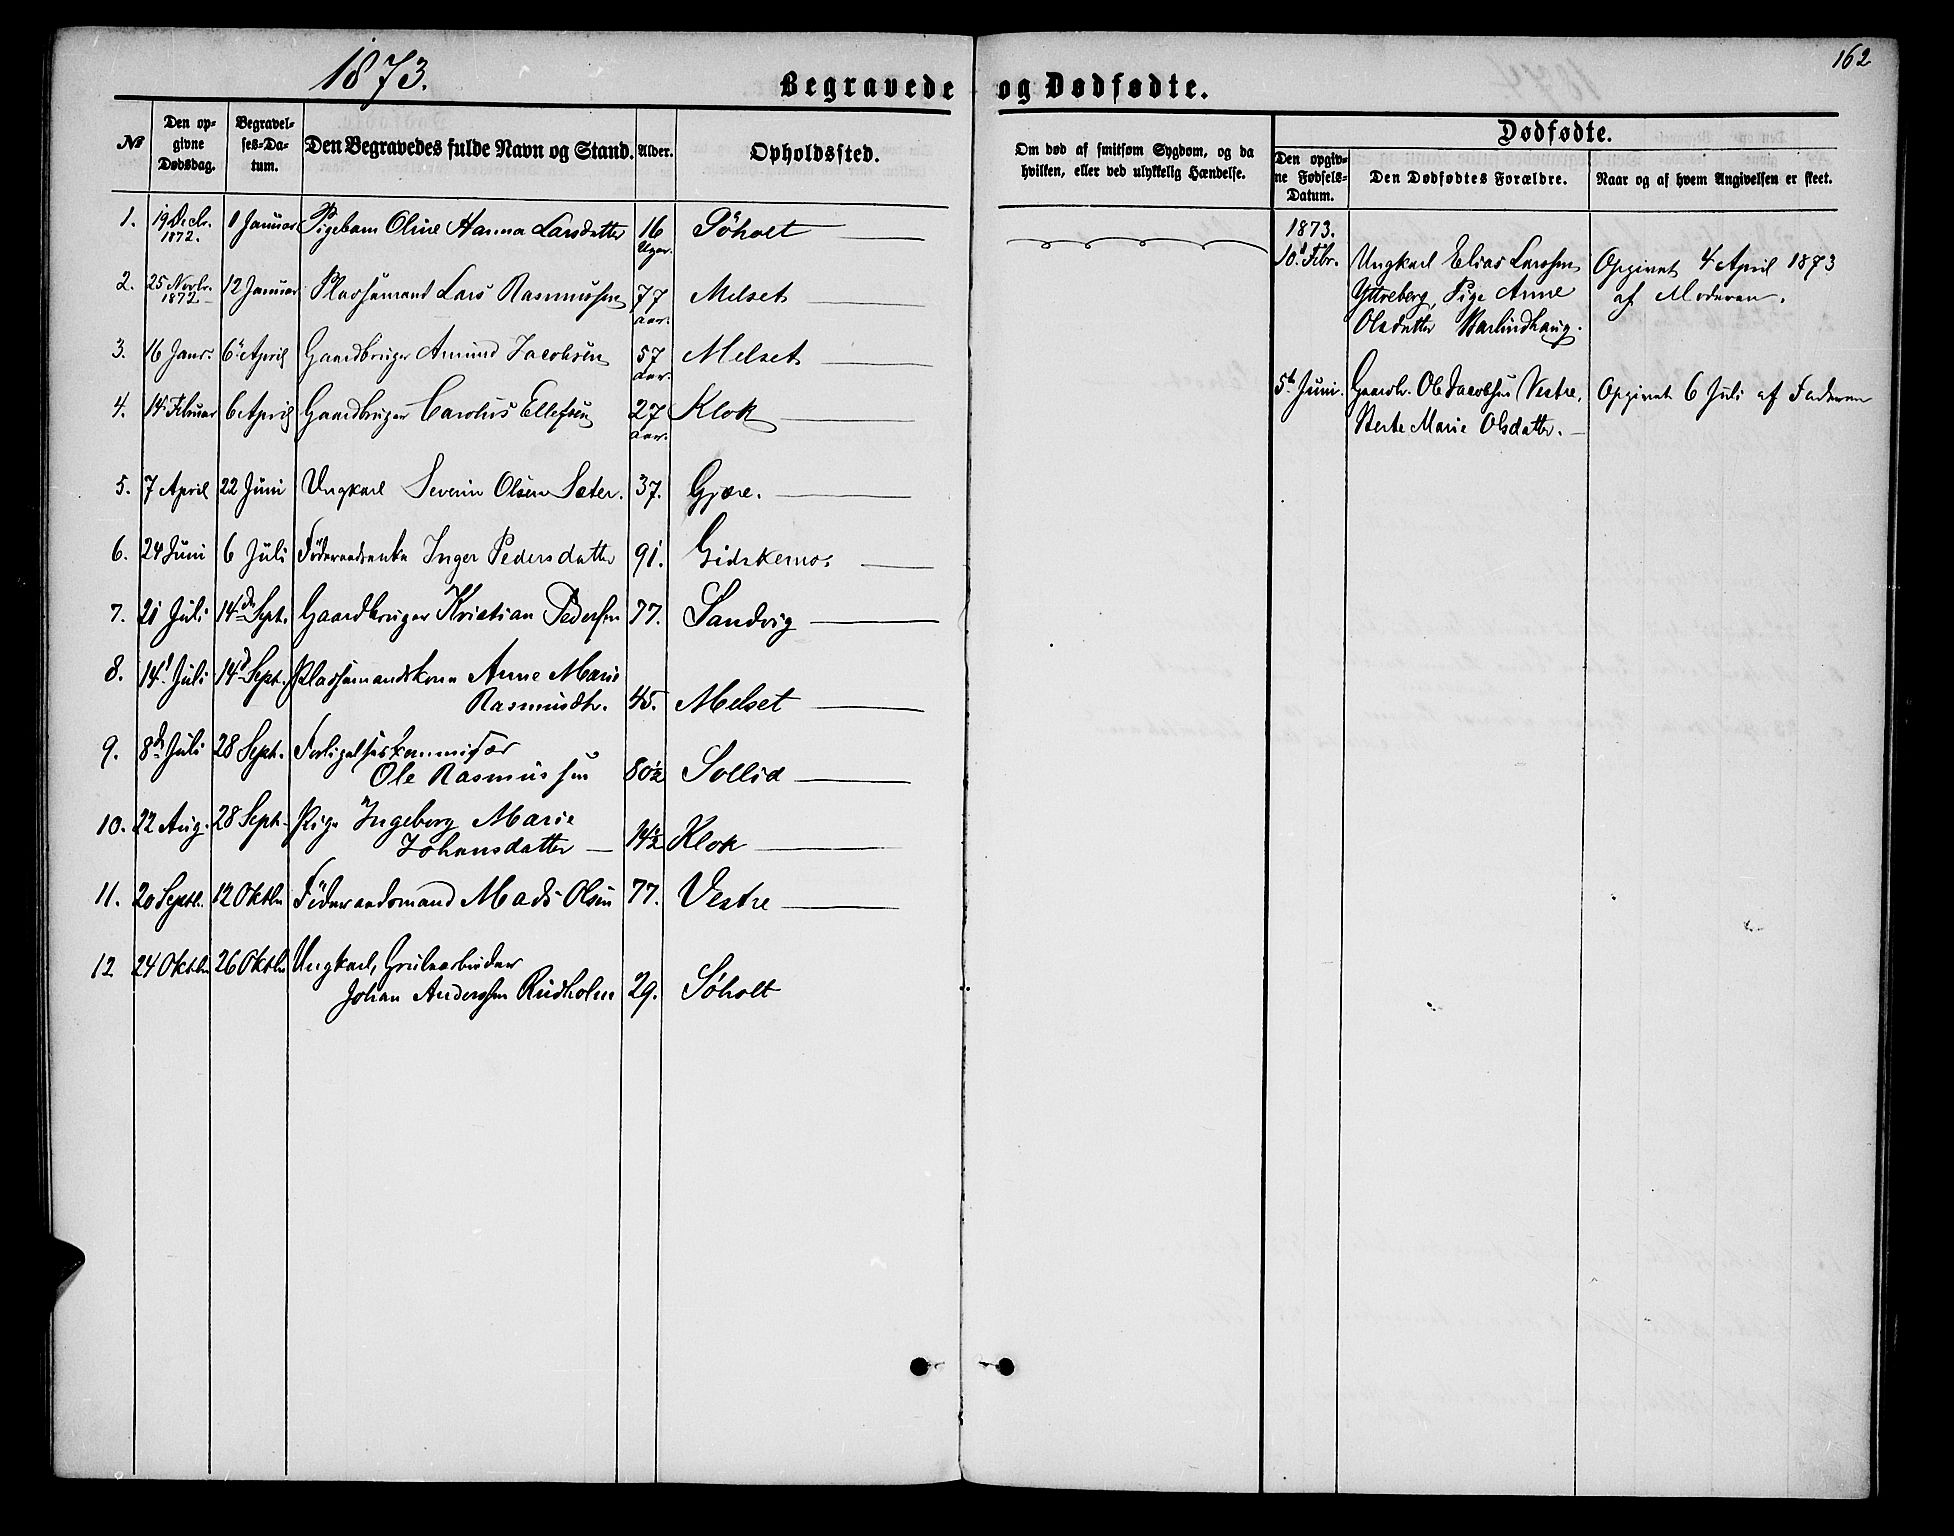 1873.
162
Begravede og Dødfødte.
№
Den opgivne Dødsdag.
Begravelses-Datum.
Den Begravedes fulde Navn og Stand.
Alder.
Opholdssted.
Om død af smitsom Sygdom, og da hvilken, eller ved ulykkelig Hændelse.
Dødfødte.
Den opgivne Fødsels-Datum.
Den Dødfødtes Forældre.
Naar og af hvem Angivelsen er skeet.
1. 19 Decbr. 1872. 1 Januar Pigebarn Oline Hanna Larsdatter 16 Uger Söholt
2. 25 Novbr. 1872 12 Januar Plassamand Lars Rasmussen 77 aar. Melset
3. 16 Janr. 6 April Gaardbruger Amund Jacobsen 57 Aar. Melset
4. 14 Februar 6 April Gaardbruger Carolus Ellefsen 27 aar. Klok
5. 7 April 22 Juni Ungkarl Severin Olsen Sæter. 37. Gjære.
6. 24 Juni 6 Juli Föderaadsenke Inger Pedersdatter 91. Gidskemo.
7. 21 Juli 14de Sept. Gaardbruger Kristian Pedersen 77. Sandvig
8. 14 Juli 14d Sept. Plassamandskone Anne Marie
Rasmusdtr. 45. Melset
9. 8de Juli 28 Sept. Forligelseskommisær
Ole Rasmussen 80½ Sollid
10. 22 Aug. 28 Sept. Pige Ingeborg Marie
Johansdatter 14½ Klok
11. 20 Septb. 12 Oktbr Föderaadsmand Mads Olsen 77. Vestre
12 24 Oktbr 26 Oktbr Ungkarl, Grubearbeider
Johan Anderssen Rudholm 29. Søholt
1873.
10. Febr. Ungkarl Elias Larssen Opgivet 4 April 1873
Yttreberg, Pige Anne af Moderen.
Olsdatter Barlindhaug.
5t Juni. Gaardbr. Ole Jacobsen Vestre, Opgivet 6 Juli af Faderen
Berte Marie Olsdatter.